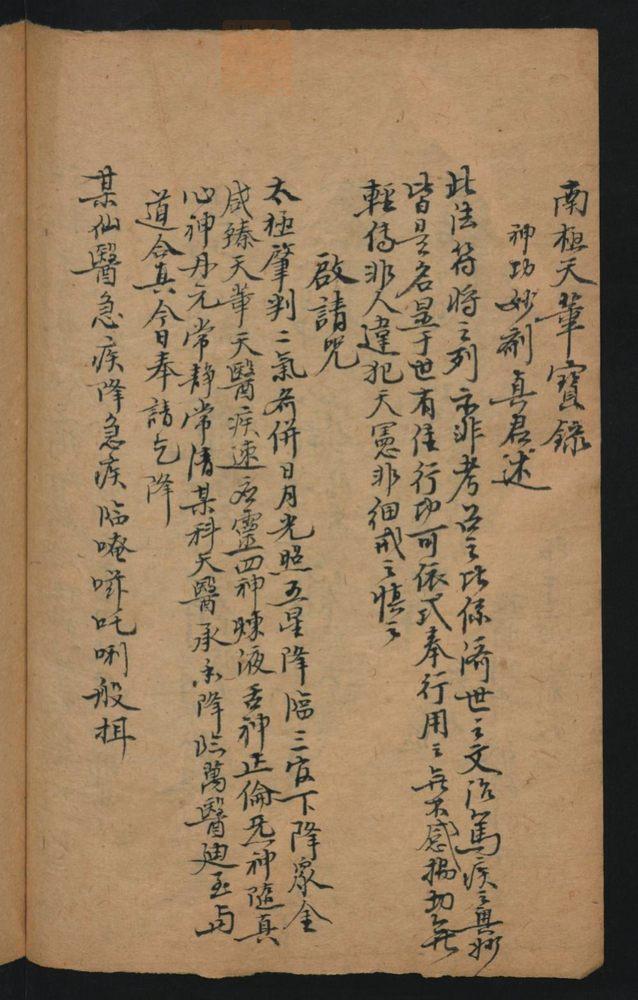 南極天華寶錄
神功妙劑真君述
此法符將之列亦非考召之比係濟世之文治篤疾之奧妙
皆是名显于世有往行功可依式奉行用之無不感揚切無
輕傳非人違犯天憲非細戒之慎之
啟請咒
太極肇判二氣分併日月光照五星降臨三官下降眾全
咸臻天華天醫疾速召靈四神練液舌神正倫炁神隨真
心神丹元常靜常清某科天醫承命降臨萬醫迪至與
道合真今日奉請乞降
某仙醫急疾降急疾臨唵㘕吒唎般揖